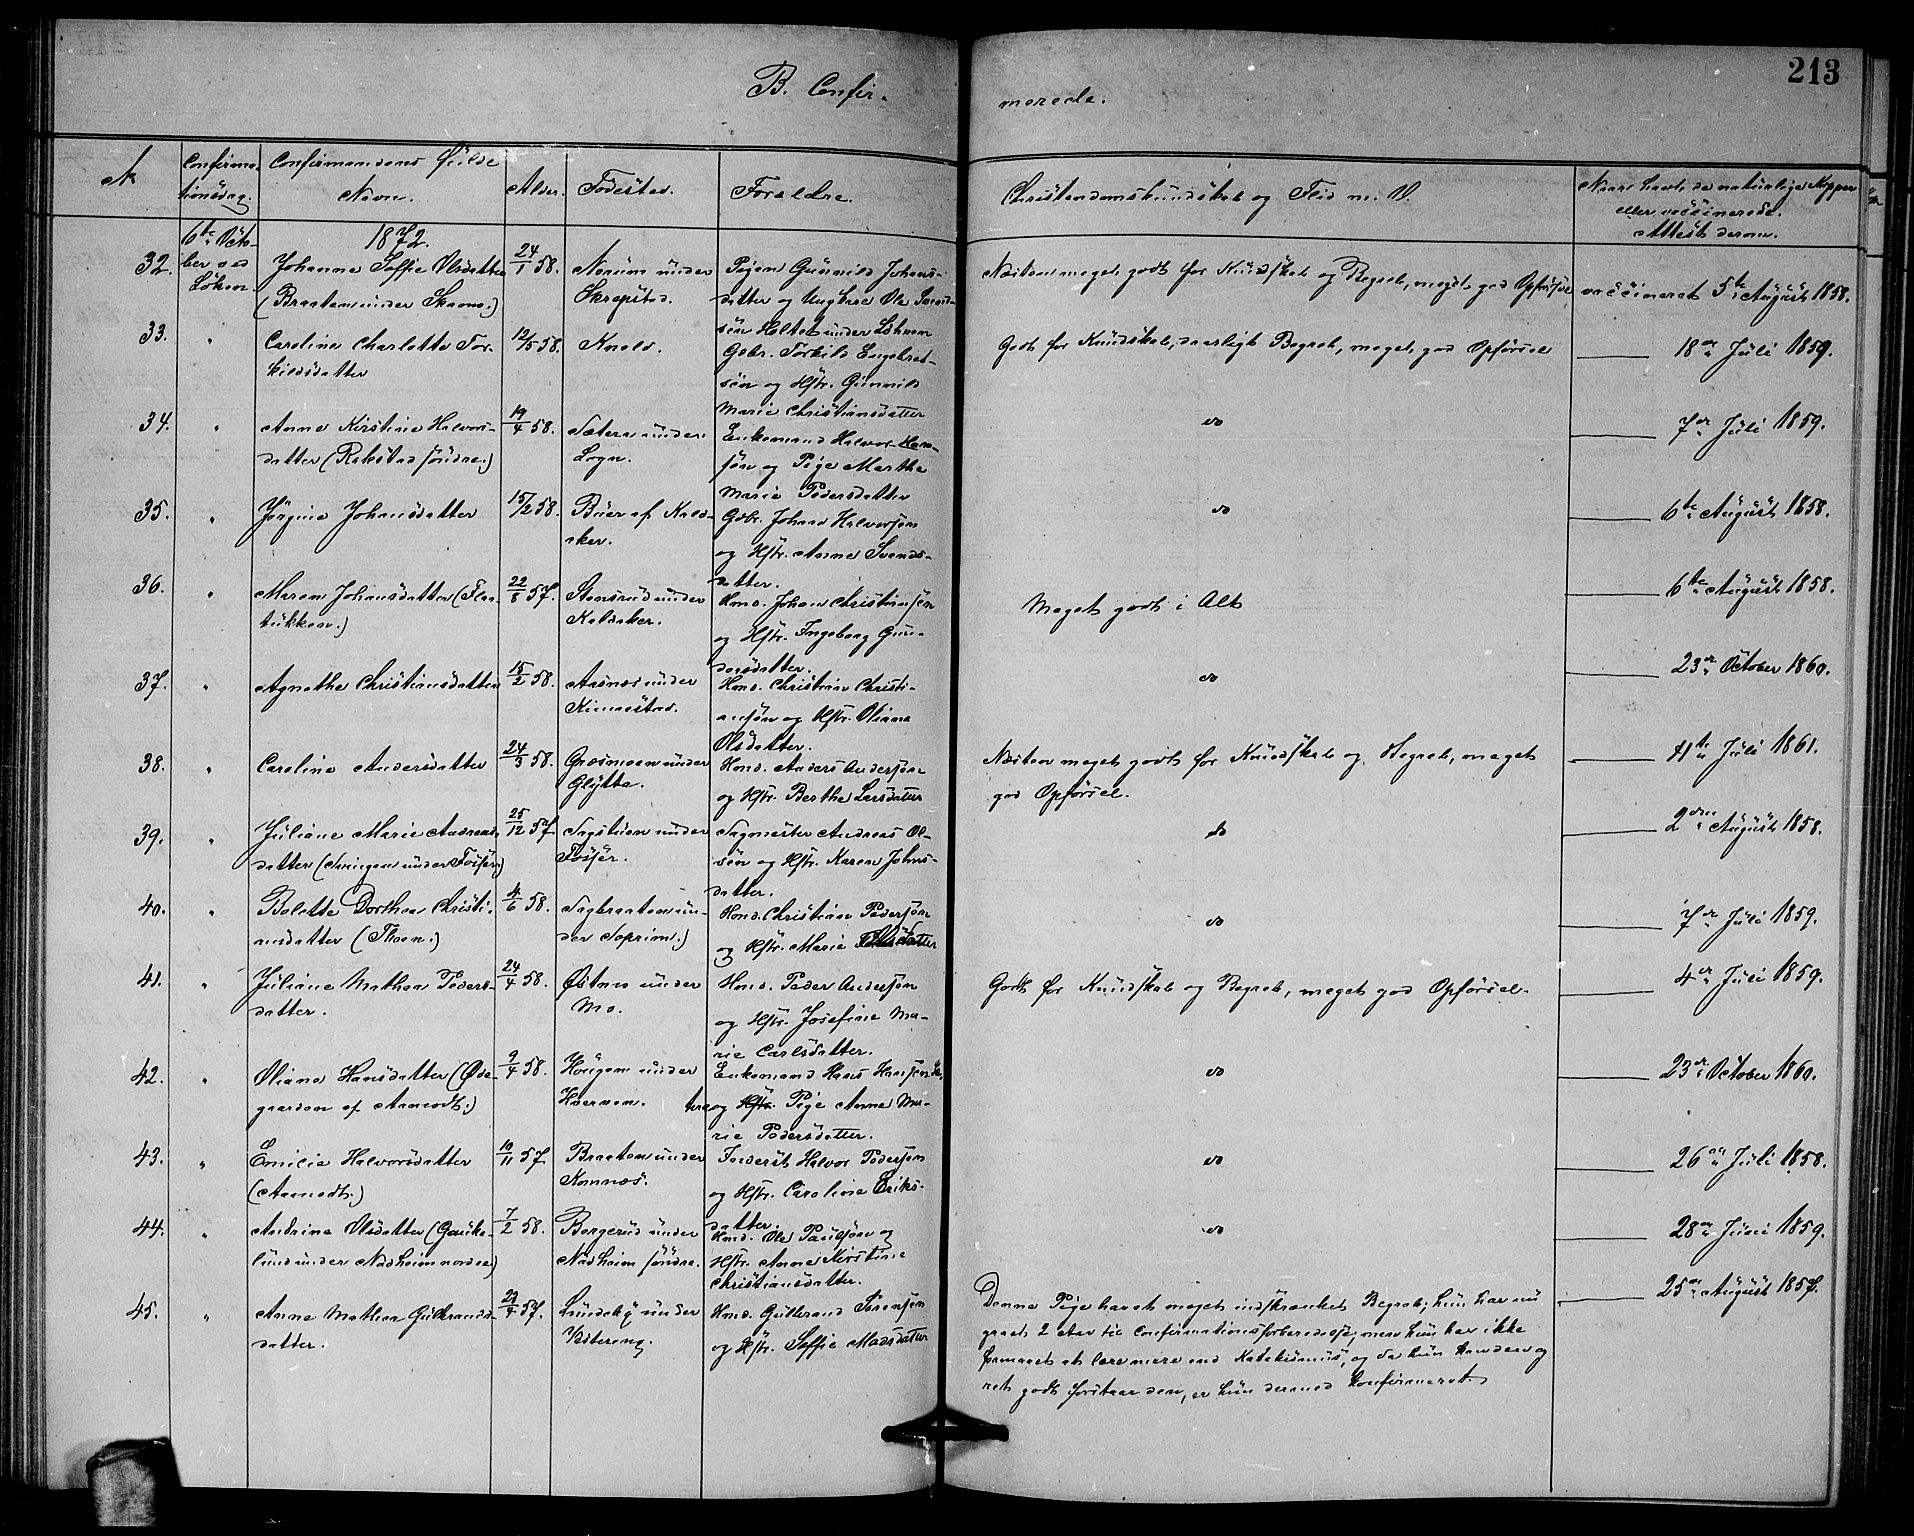 213
B. Confir-
merede.
№
Confirma-
tionsdag.
Confirmandens fulde
Navn.
Alder.
Fødested.
Forældre.
Christendomskundskab og Flid m. V.
Naar havt de naturlige Kopper
eller vaccinerede.
Attest derom.
6te Octo-
ber ved
Løken.
1872.
32.
Johanne Soffie Olsdatter
(Braaten under Skavne.)
24/1 58.
Norum under
Skrepstad.
Pigen Gunnild Johans-
datter og Ungkarl Ole
søn Haltet under Løhren
Næsten meget godt for Kundskab og Begreb, meget god Opførsel
vaccineret 5te August 1858.
33.
"
Caroline Charlotte Tor-
kildsdatter
12/5 58.
Knold.
Gbr. Torkild Engebret-
søn og Hstr. Gunnild
Marie Christiansdatter
Godt for Kundskab, daarligt Begreb, meget god Opførsel
18de Juli 1859.
34.
"
Anne Kirstine Halvors-
datter (Rakstad søndre.)
19/4 58.
Sæteren under
Logn.
Enkemand Halvor Han-
søn og Pige Marthe
Marie Pedersdatter
do
7de Juli 1859.
35.
"
Jørgine Johansdatter
15/2 58.
Buer af Kals-
aker.
Gbr. Johan Halvorsøn
og Hstr. Anne Svends-
datter.
do
6te August 1858.
36.
"
Maren Johansdatter (Flaa-
tukken.)
22/8 57.
Stensrud under
Kalsaker.
Hmd. Johan Christiansøn
og Hstr. Ingeborg Gun-
dersdatter.
Meget godt i Alt
6te August 1858.
37.
"
Agnethe Christiansdatter
15/2 58.
Aasnes under
Kinnestad.
Hmd. Christian Christi-
ansøn og Hstr. Oliane
Olsdatter.
do
23de October 1860.
38.
"
Caroline Andersdatter
24/3 58.
Græsmoen under
Glytta.
Hmd. Anders Andersøn
og Hstr. Berthe Larsdatter
Næsten meget godt for Kundskab og Begreb, meget
god Opførsel.
11te Juli 1861.
39.
"
Juliane Marie Andreas-
datter (Svingen under Fosser)
25/12 57.
Sagstuen under
Fosser.
Sagmester Andreas Ol-
søn og Hstr. Karen Johns-
datter.
do
2den August 1858.
40.
"
Bolette Dorthea Christi-
ansdatter (Thoen.)
4/6 58.
Sagbraaten un-
der Soprim.)
Hmd. Christian Pedersøn
og Hstr. Marie Olsdatter
do
7de Juli 1859.
41.
"
Juliane Mathea Peders-
datter.
24/4 58.
Østnes under
Mo.
Hmd. Peder Andersøn
og Hstr. Josefine Ma-
rie Carlsdatter.
Godt for Kundskab og Begreb, meget god Opførsel.
4de Juli 1859.
42.
"
Oliane Hansdatter (Øde-
gaarden af Aamodt.)
9/4 58.
under
Enkemand Hans Hansøn
og Hstr. Pige Anne Ma-
rie Pedersdatter.
do
23de October 1860.
43.
"
Emilie Halvorsdatter
(Aamodt.)
10/11 57.
Braaten under
Komnæs.
Inderst Halvor Pedersøn
og Hstr. Caroline Eriks-
datter.
do
26de Juli 1858.
44.
"
Andrine Olsdatter (Gauke-
lund under Nadheim nordre)
7/2 58.
Borgerud under
Nadheim søndre.
Hmd. Ole Paulsøn og
Hstr. Anne Kirstine
Christiansdatter.
do
28de Juni 1859.
45.
"
Anne Mathea Gulbrands-
datter.
23/4 57.
Lundeby under
Vestereng.
Hmd. Gulbrand Sørensøn
og Hstr. Soffie Madsdatter
Denne Pige har et meget indskrænket Begreb; hun har nu
gaaet 2 Aar til Confirmationsforberedelse, men hun har ikke
formaaet at lære mere end Katekismus, og da hun kan den og
ret godt forstaar den, er hun dermed konfirmeret.
25de August 1857.